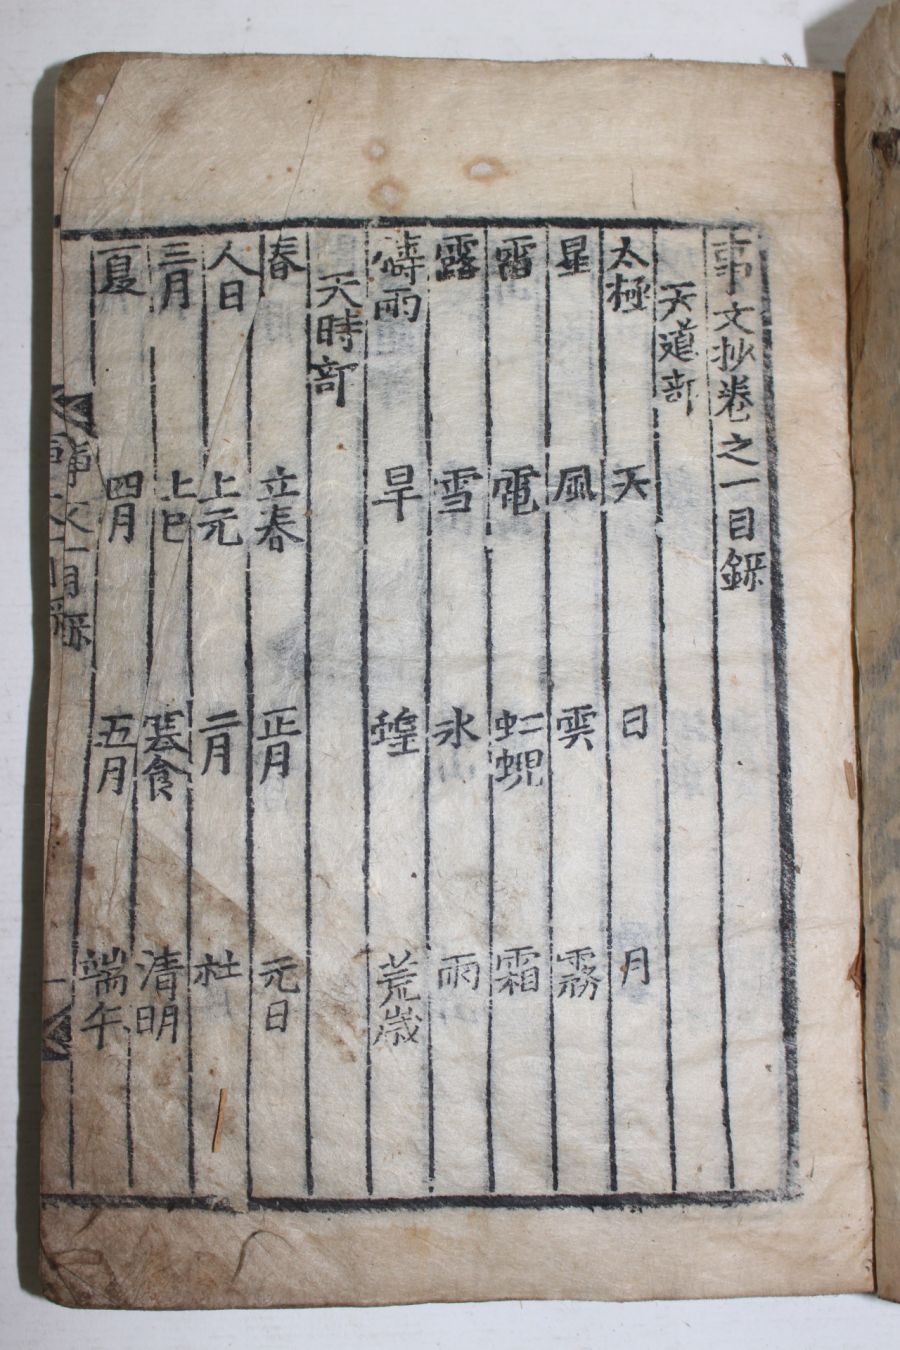 事文抄卷之一目録
天道部
太極 天 日 月
星 風 雲 霧
雷 電 虹蜺 霜
露 雪 氷 雨
禱雨 旱 蝗 荒歲
天時部
春 立春 正月 元日
人日 上元 二月 社
三月 上巳 寒食 清明
夏 四月 五月 端午
事文一目録 一